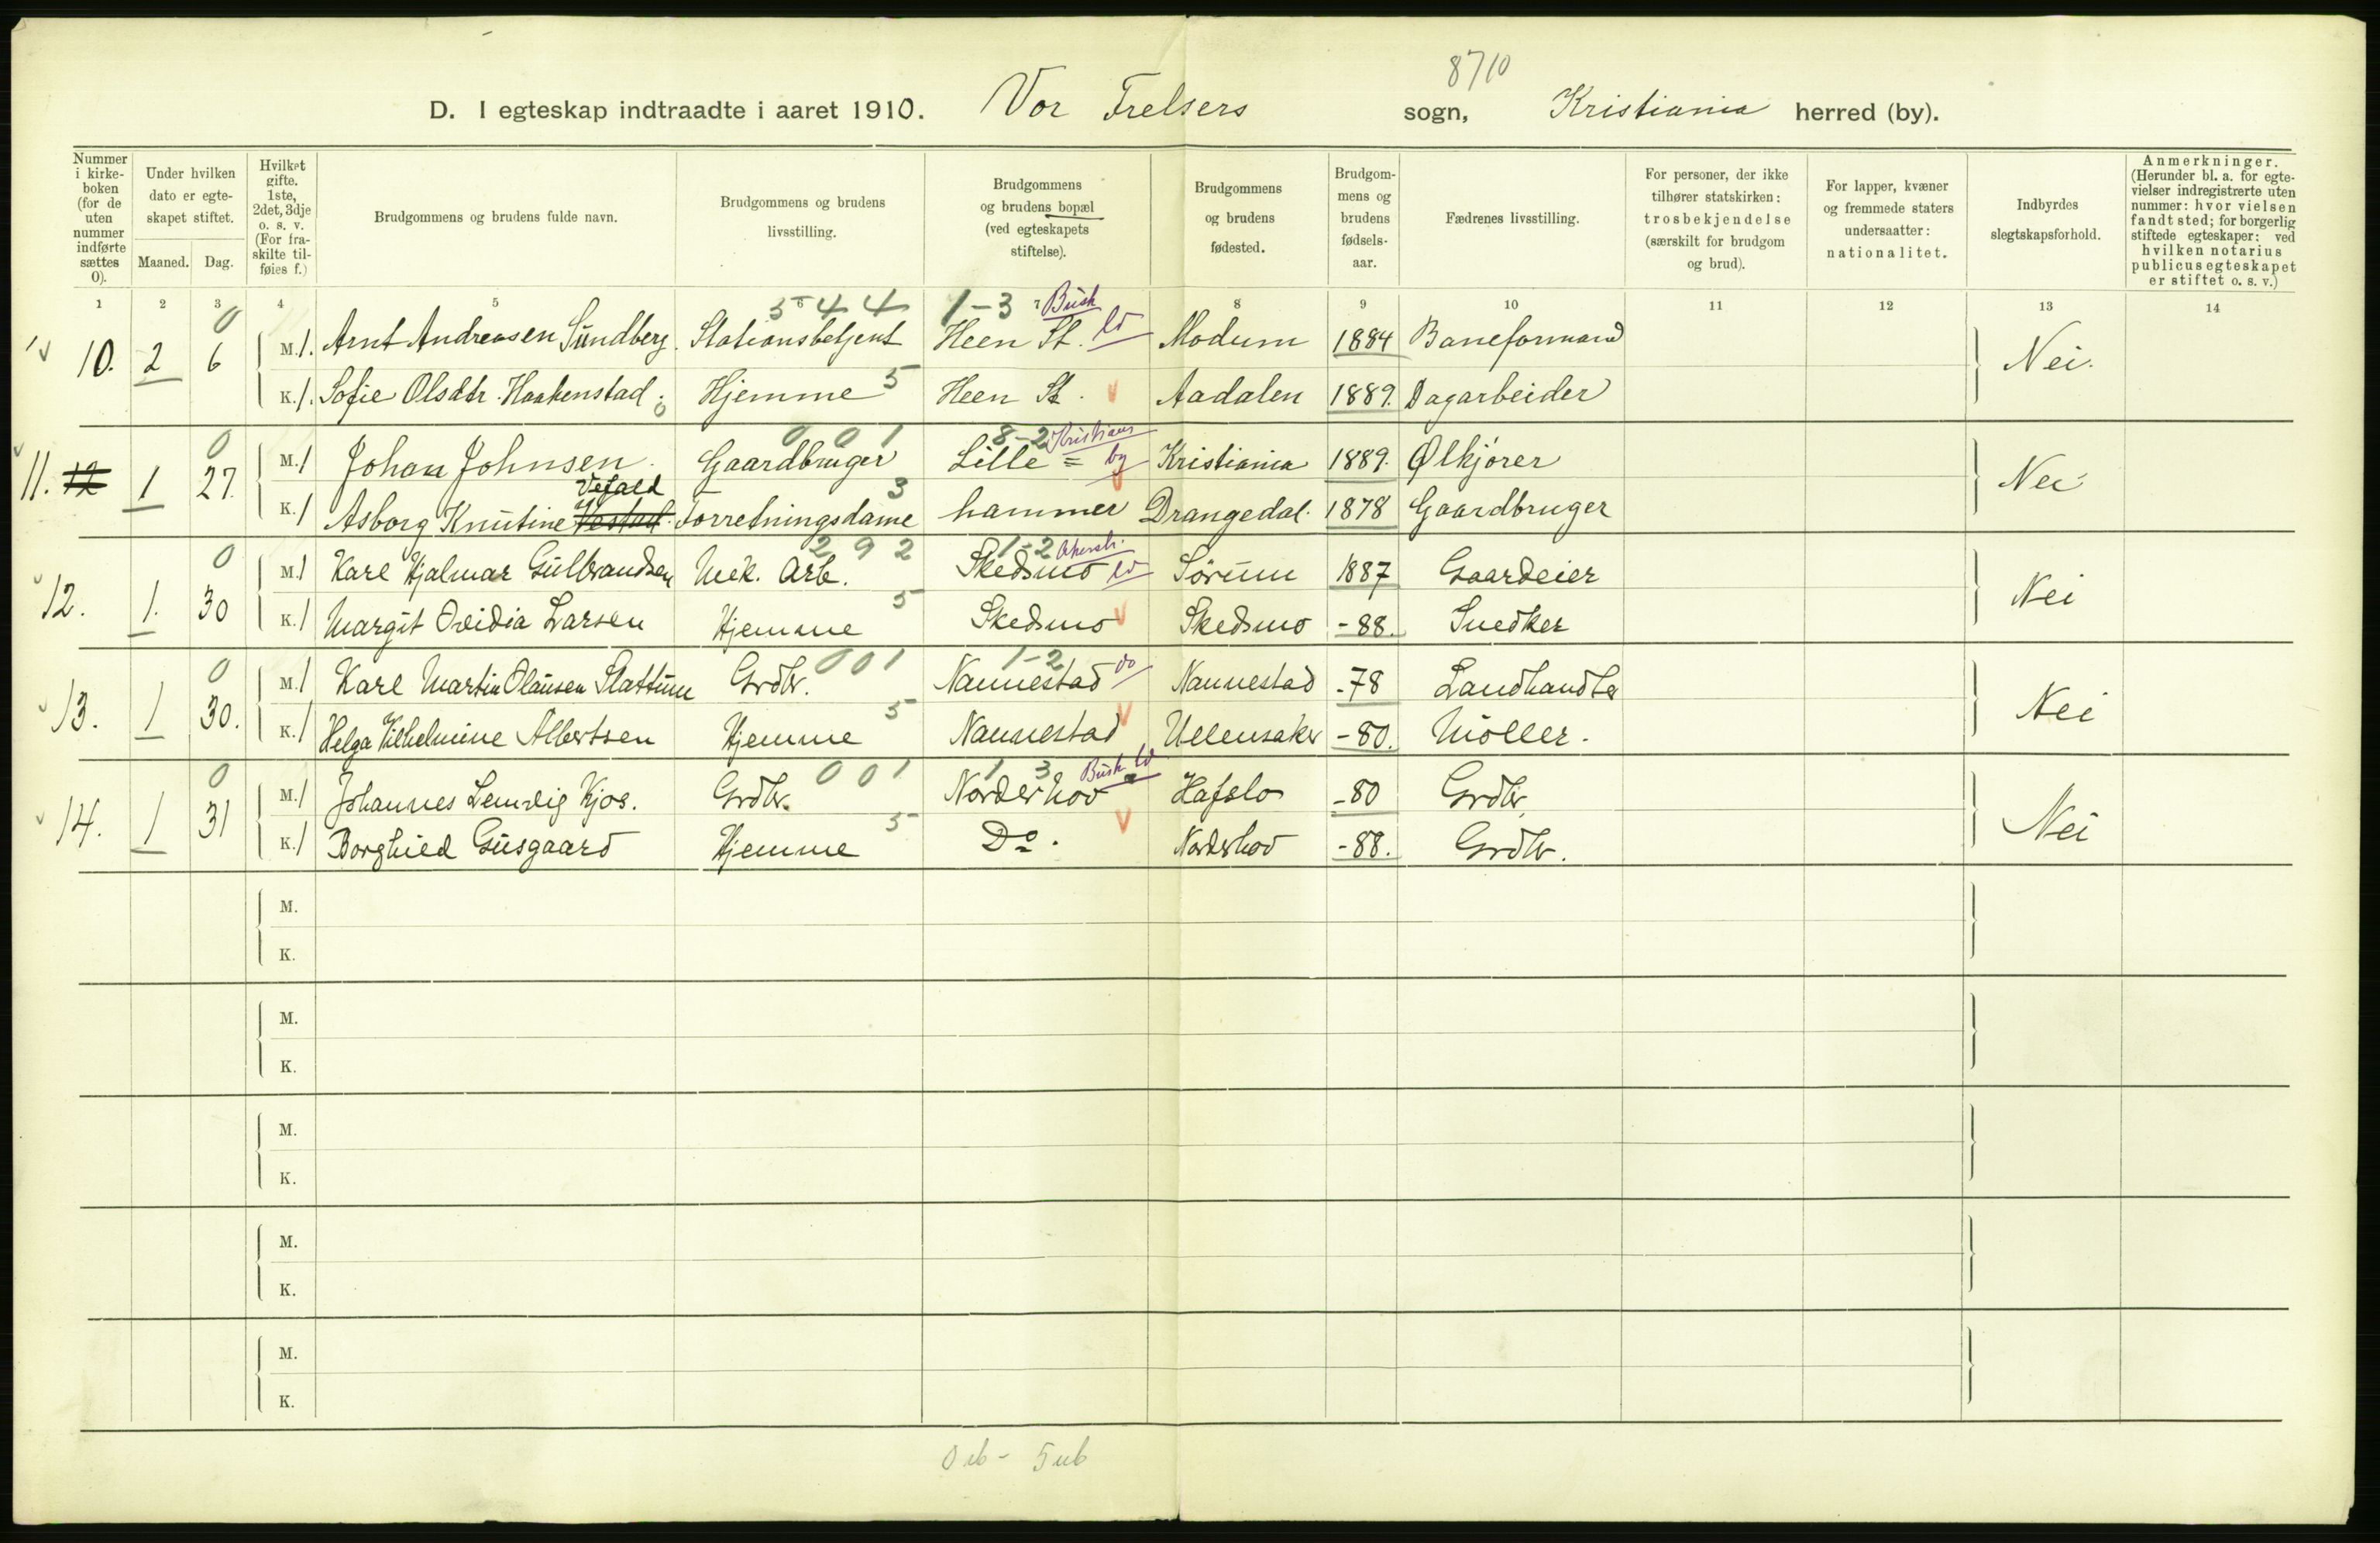 8710
D. I egteskap indtraadte i aaret 1910. Vor Frelsers sogn, Kristiania herred (by).
Nummer i kirke-boken (for de uten nummer indførte sættes 0).
Under hvilken dato er egte-skapet stiftet.
Maaned. Dag.
Hvilket gifte. 1ste, 2det, 3dje o. s. v. (For fra-skilte til-føies f.)
Brudgommens og brudens fulde navn.
Brudgommens og brudens livsstilling.
Brudgommens og brudens bopæl (ved egteskapets stiftelse).
Brudgommens og brudens fødested.
Brudgom-mens og brudens fødsels-aar.
Fædrenes livsstilling.
For personer, der ikke tilhører statskirken: trosbekjendelse (særskilt for brudgom og brud).
For lapper, kvæner og fremmede staters undersaatter: nationalitet.
Indbyrdes slegtskapsforhold.
Anmerkninger. (Herunder bl. a. for egte-vielser indregistrerte uten nummer: hvor vielsen fandt sted; for borgerlig stiftede egteskaper: ved hvilken notarius publicus egteskapet er stiftet o. s. v.)
1 2 3 4 5 6 7 8 9 10 11 12 13 14
0 5 4 4 1-3 Busk ld
10. 2 6 M. 1. Arnt Andreasen Sundberg. Stationsbetjent Heen St. Modum 1884 Baneformand Nei.
K. 1. Sofie Olsdtr. Haakenstad. Hjemme 5 Heen St. v Aadalen 1889. Dagarbeider
0 0 0 1 8-2 Kristians by
11. 12 1 27. M. 1 Johan Johnsen. Gaardbruger Lille= Kristiania 1889. Ølkjører Nei
Vefald 3
K. 1 Asborg Knutine Vestad. Forretningsdame hammer Drangedal. 1878 Gaardbruger
0 2 9 2 1-2 Akersh. ld
12. 1. 30 M. 1 Karl Hjalmar Gulbrandsen Mek. Arb. Skedsmo Sørum 1887 Gaardeier Nei
K. 1 Margit Ovidia Larsen Hjemme 5 Skedsmo v Skedsmo -88. Snedker
0 0 0 1 1-2 do
13. 1 30. M. 1 Karl Martin Olausen Slattum Grdbr. Nannestad Nannestad -78 Landhandler Nei
K. 1 Helga Vilhelmine Albertsen Hjemme 5 Nannestad v Ullensaker -80. Møller.
0 0 0 1 1 3 Busk ld
14. 1 31 M. 1 Johannes Lemvig Kjos. Grdbr. Norderhov Hafslo -80 Grdbr. Nei
K. 1 Borghild Gusgaard Hjemme 5 Do. v Norderhov -88. Grdbr.
M.
K.
M.
K.
M.
K.
M.
K.
M.
K.
0 ib - 5 ub